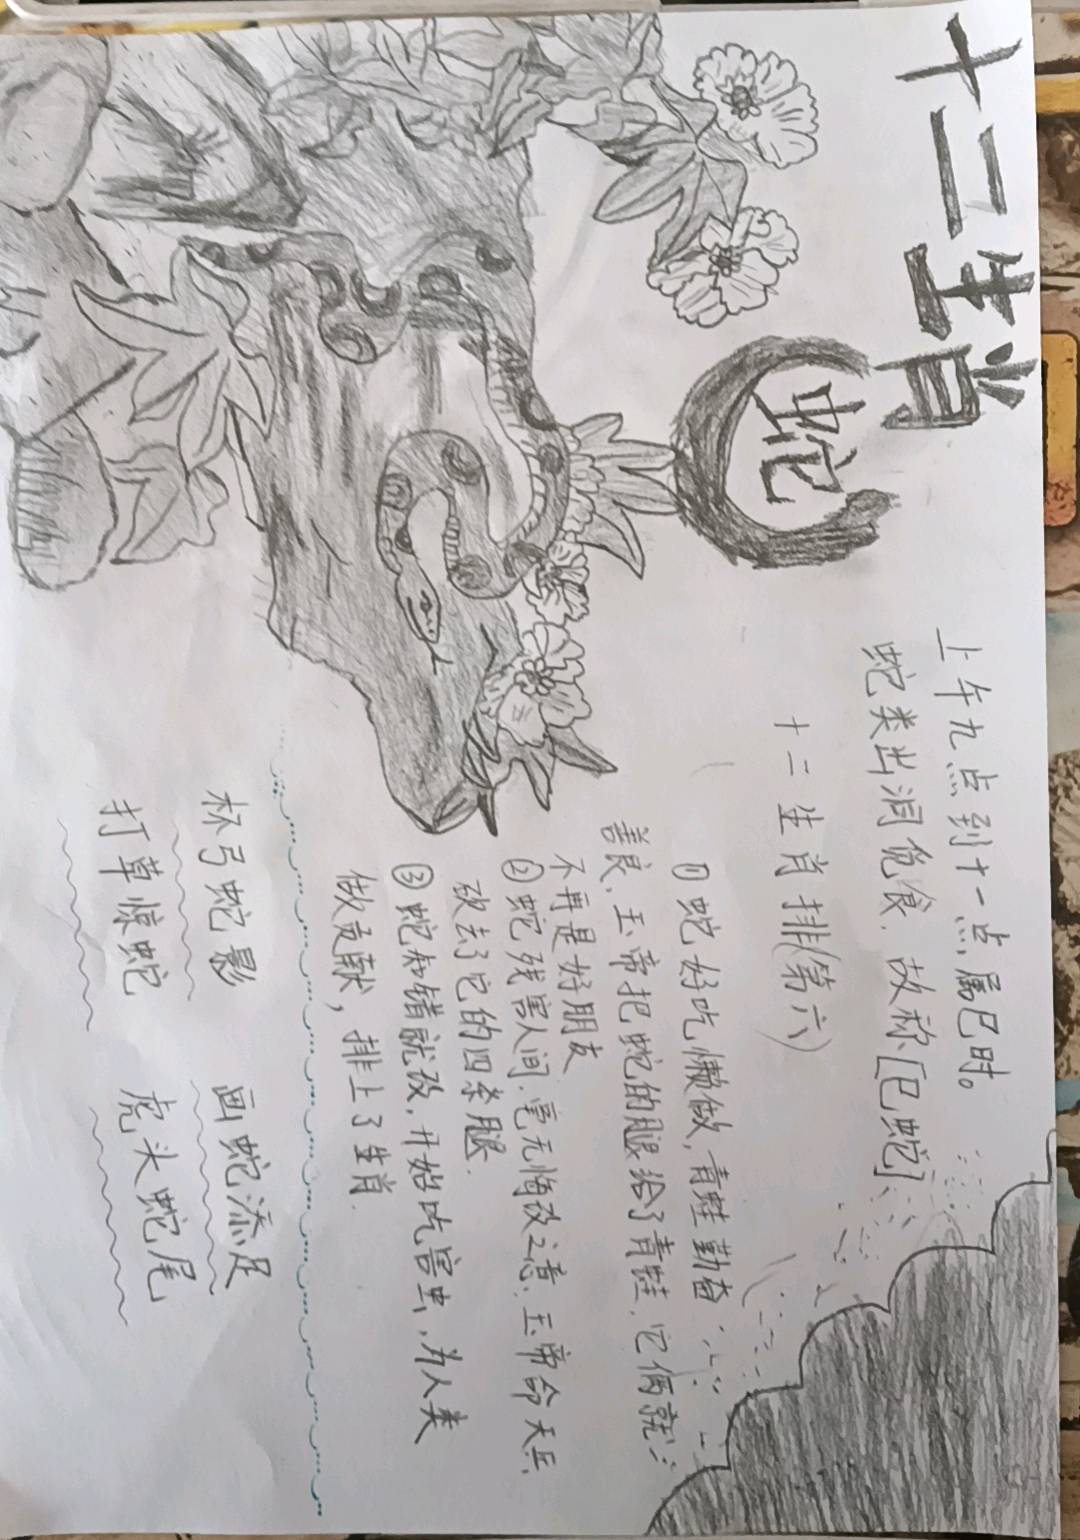 十二生肖
蛇
上午九点到十一点属巳时。
蛇类出洞觅食，故称[巳蛇]
十二生肖排(第六)
① 蛇好吃懒做，青蛙勤奋
善良，玉帝把蛇的腿给了青蛙，它俩就
不再是好朋友
② 蛇残害人间，毫无悔改之意，玉帝命天兵
砍去了它的四条腿.
③ 蛇知错就改，开始吃害虫，为人类
做贡献，排上了生肖.
杯弓蛇影 画蛇添足
打草惊蛇 虎头蛇尾